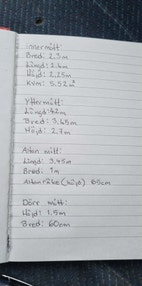 Innermått:
Bred: 2.3m
Längd: 2.4m
Höjd: 2.25m
Kvm: 5.52m²
Yttermått:
Längd: 4m
Bred: 3.65m
Höjd: 2.7m
Altan mått:
Längd: 3.45m
Bred: 1m
Altanräcke (höjd) 65cm
Dörr mått:
Höjd: 1.5m
Bred: 60cm